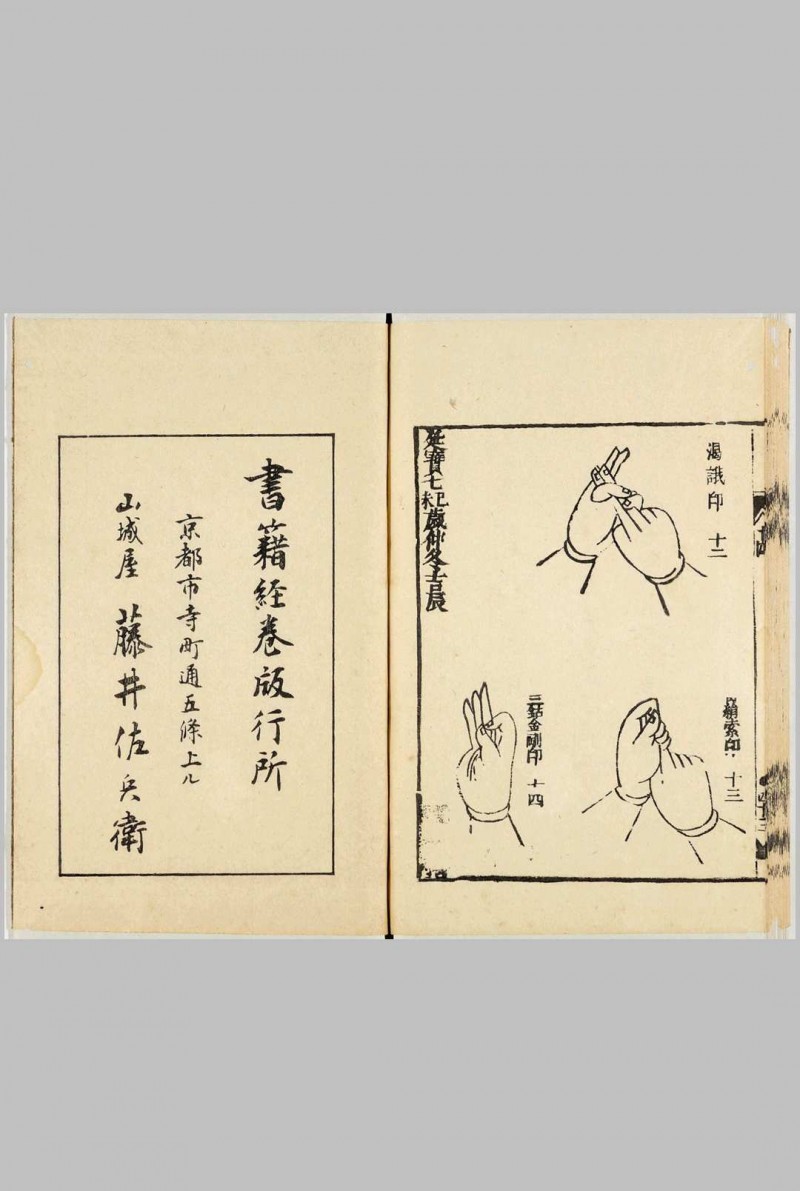 渇誐印 十二
羂索印 十三
三鈷金剛印 十四
延寶七紀歳仲冬吉辰
書籍経巻版行所
京都市寺町通五條上ル
山城屋 藤井佐兵衛